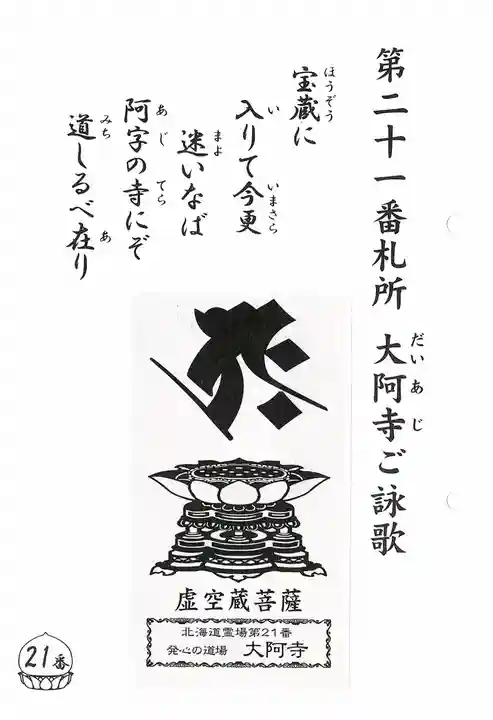 第二十一番札所 大阿寺ご詠歌
だいあじ
宝蔵に
ほうぞう
入りて今更
い いまさら
迷いなば
まよ
阿字の寺にぞ
あじ てら
道しるべ在り
みち あ
虚空蔵菩薩
北海道霊場第21番
発心の道場 大阿寺
21番